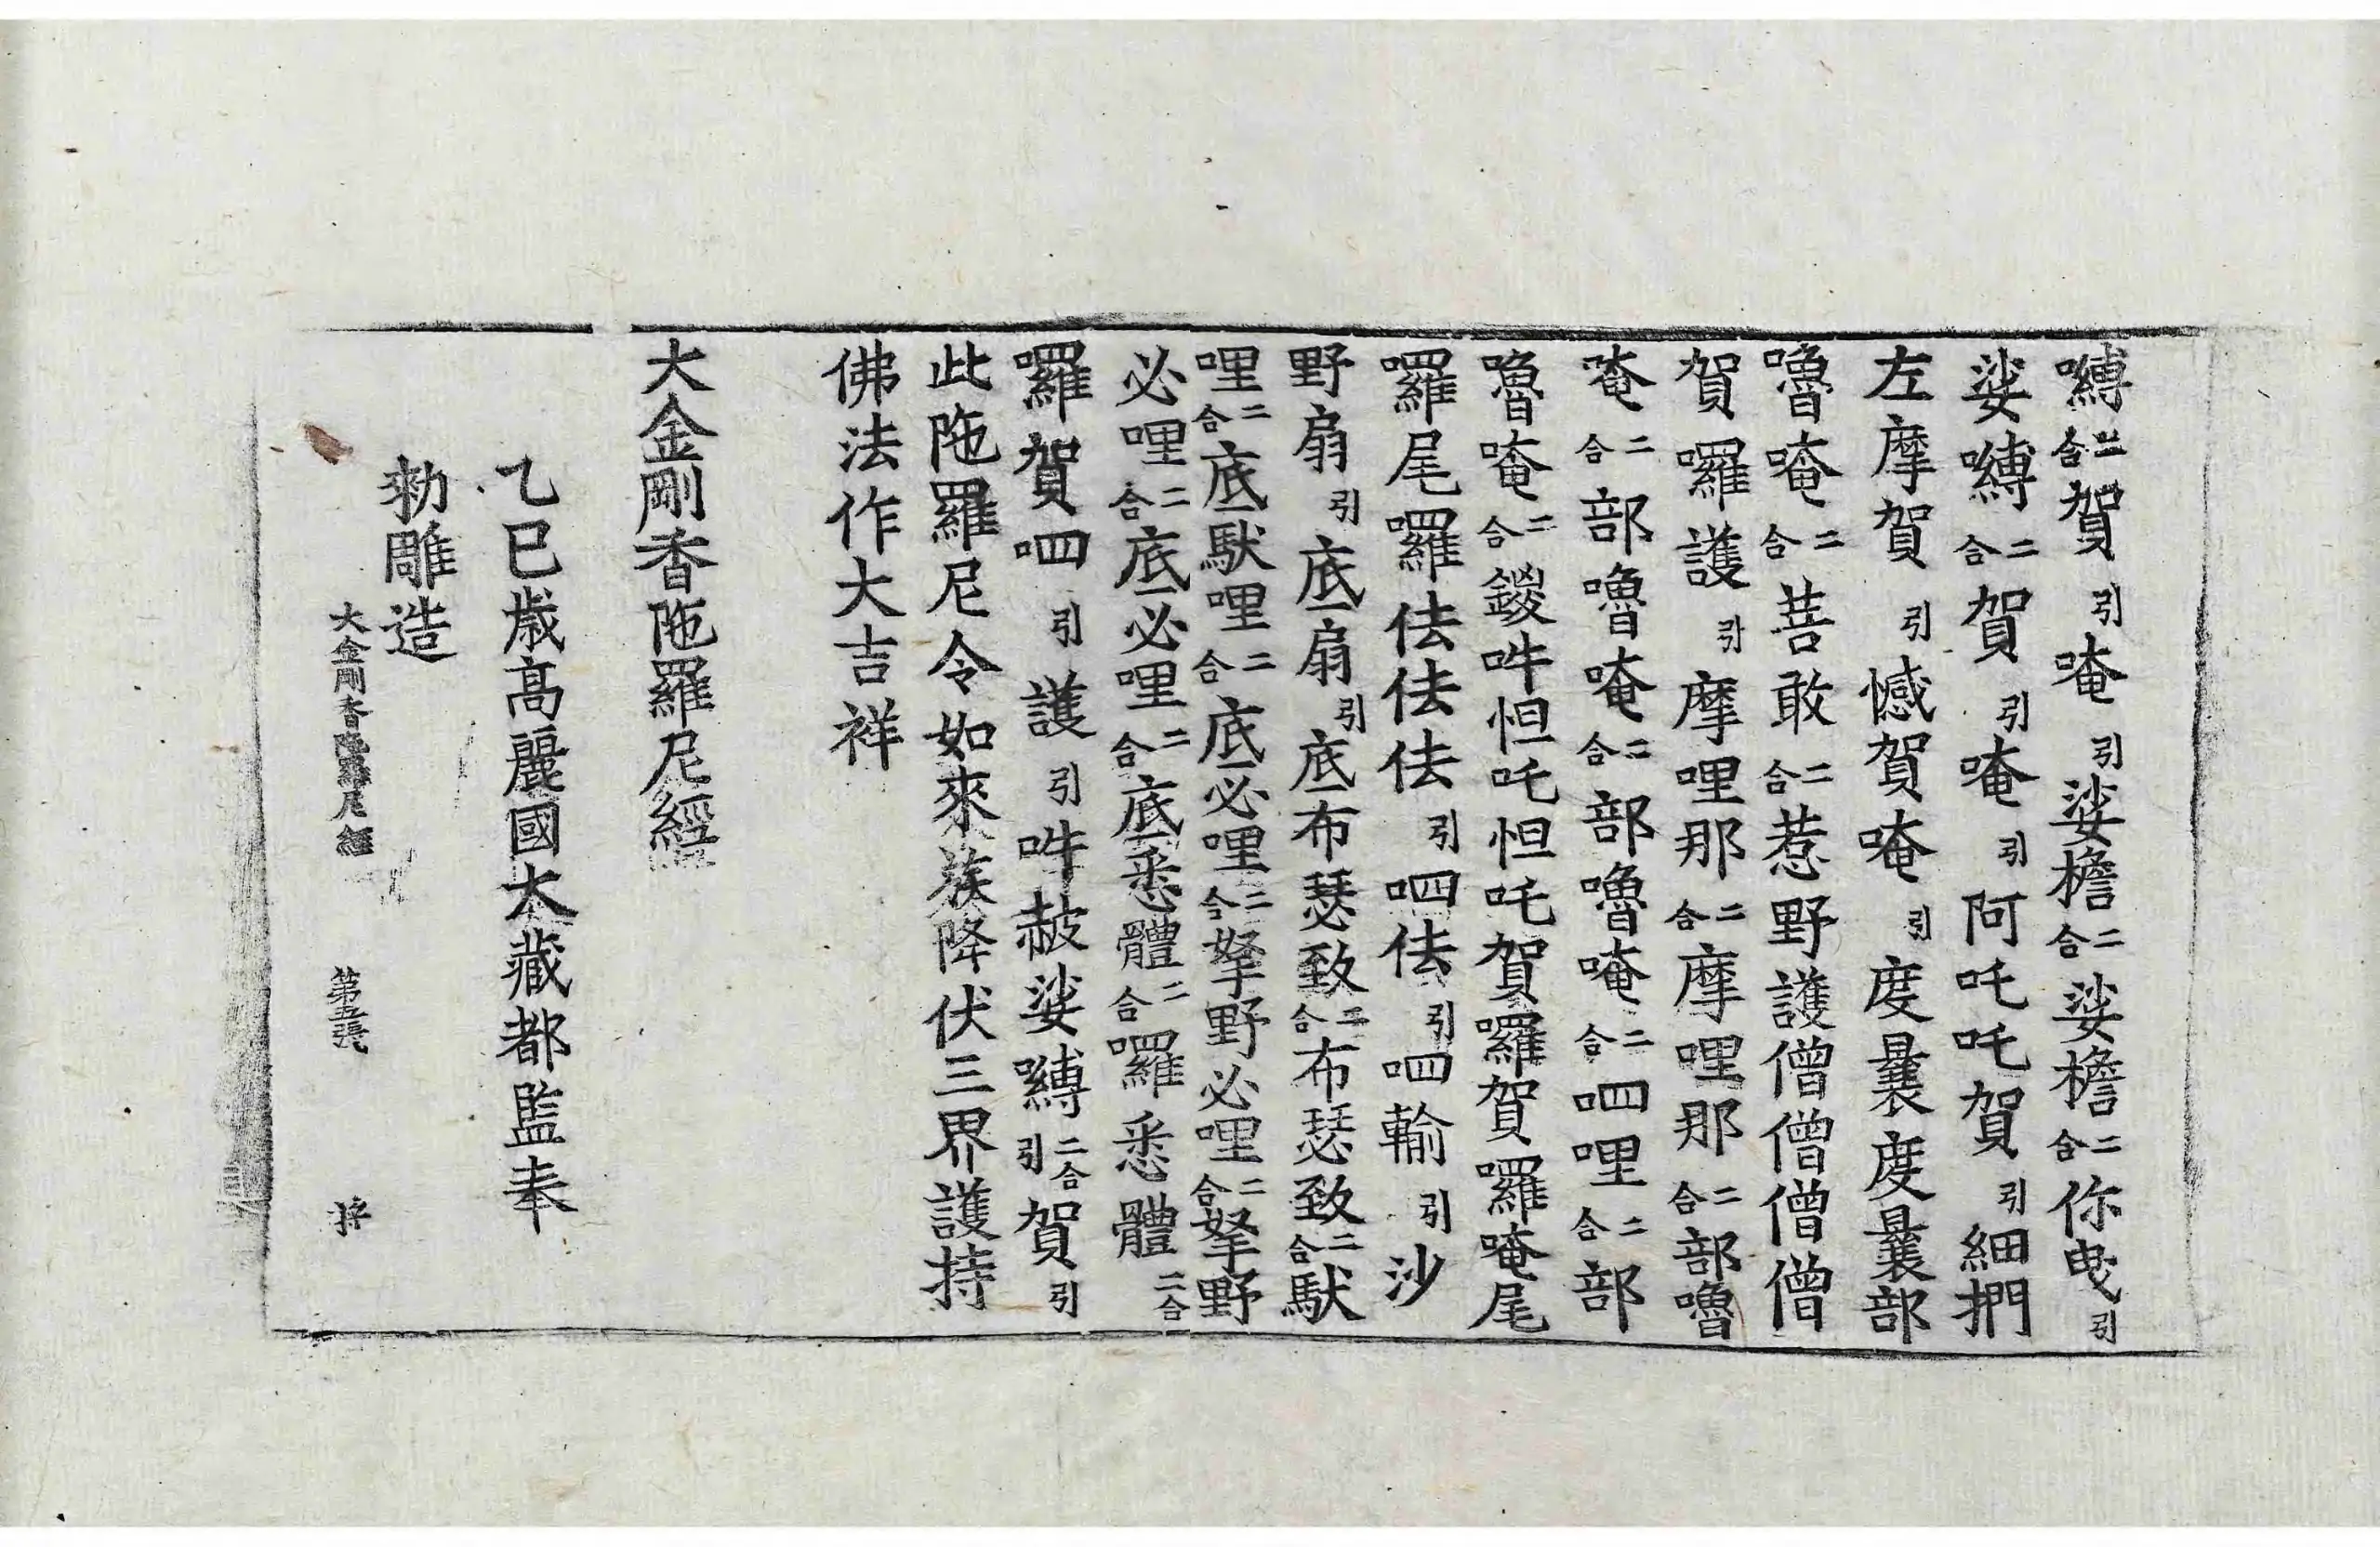 嚩二合賀引唵引娑檐二合娑檐二合你曳引
娑嚩二合賀引唵引阿吒吒賀引細捫
左摩賀引憾賀唵引度曩度曩部
嚕唵二合菩敢二合惹野護僧僧僧僧
賀囉護引摩哩那二合摩哩那二合部嚕
唵二合部嚕唵二合部嚕唵二合呬哩二合部
嚕唵二合錽吽怛吒怛吒賀囉賀囉唵尾
囉尾囉佉佉佉引呬佉引呬輸引沙
野扇引底扇引底布瑟致二合布瑟致二合馱
哩二合底馱哩二合底必哩二合拏野必哩二合拏野
必哩二合底必哩二合底悉體二合囉悉體二合
囉賀呬引護引吽赧娑嚩二合引賀引
此陁羅尼令如來族降伏三界護持
佛法作大吉祥
大金剛香陁羅尼經
乙巳歲高麗國大藏都監奉
勑雕造
大金剛香陁羅尼經 第五張 将